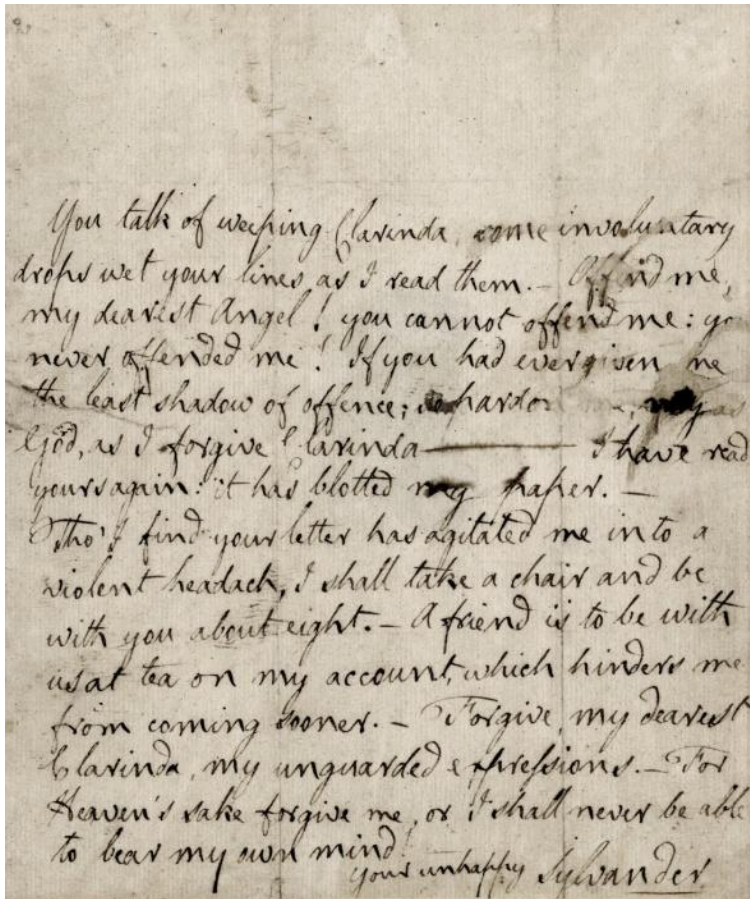 You talk of weeping Clarinda, some involuntary
drops wet your lines as I read them. – Offend me,
my dearest Angel! you cannot offend me: you
never offended me! If you had ever given me
the least shadow of offence; so pardon me, my
God, as I forgive Clarinda ——— I have read
yours again: it has blotted my paper. –
Tho' I find your letter has agitated me into a
violent headach, I shall take a chair and be
with you about eight. – A friend is to be with
us at tea on my account, which hinders me
from coming sooner. – Forgive, my dearest
Clarinda, my unguarded expressions. – For
Heaven's sake forgive me, or I shall never be able
to bear my own mind!
your unhappy Sylvander